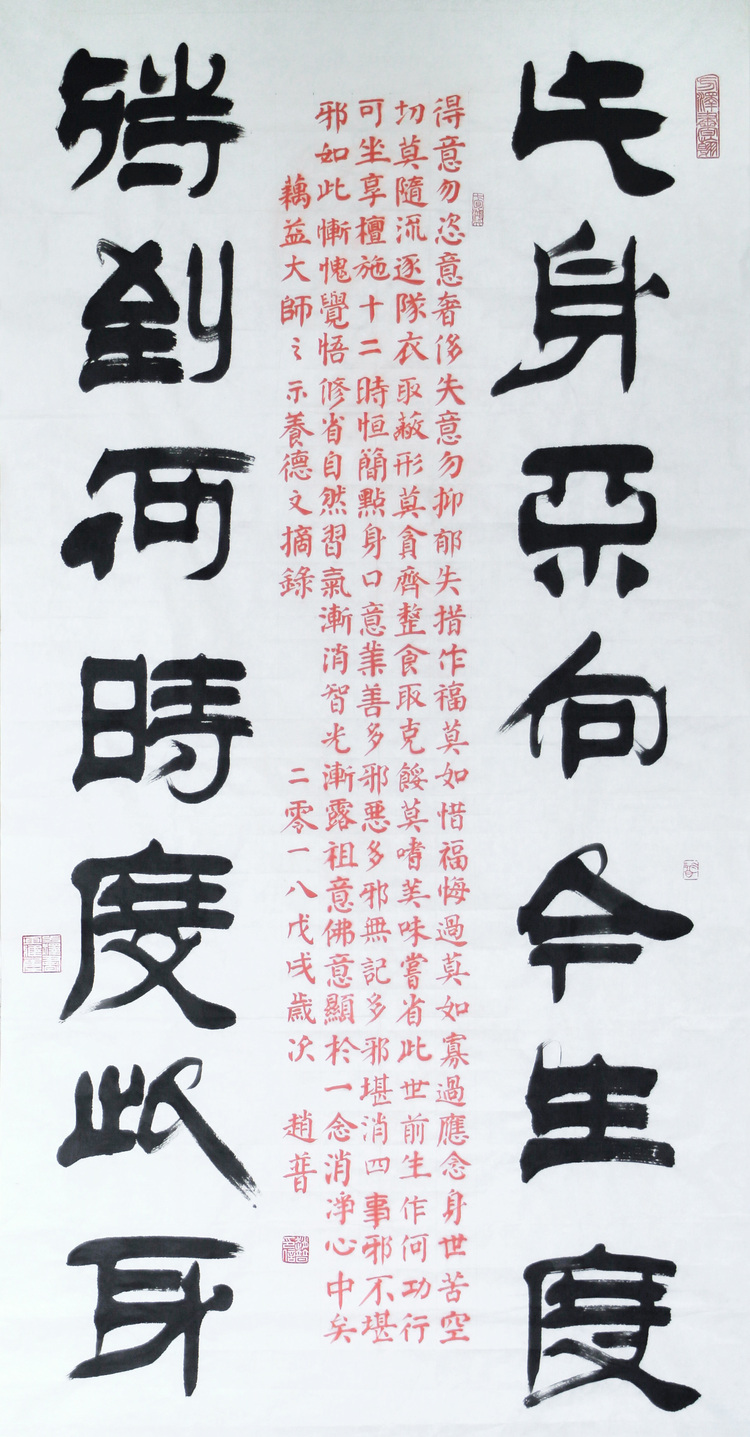 此身不向今生度
得意勿恣意奢侈失意勿抑郁失措作福莫如惜福悔過莫如寡過應念身世苦空
切莫隨流逐隊衣取蔽形莫貪齊整食取克餒莫嗜美味嘗省此世前生作何功行
可坐享檀施十二時恒簡點身口意業善多邪惡多邪無記多邪堪消四事邪不堪
邪如此慚愧覺悟修省自然習氣漸消智光漸露祖意佛意顯於一念消凈心中矣
藕益大師之示養德文摘錄 二零一八戊戌歲次 趙普
待到何時度此身